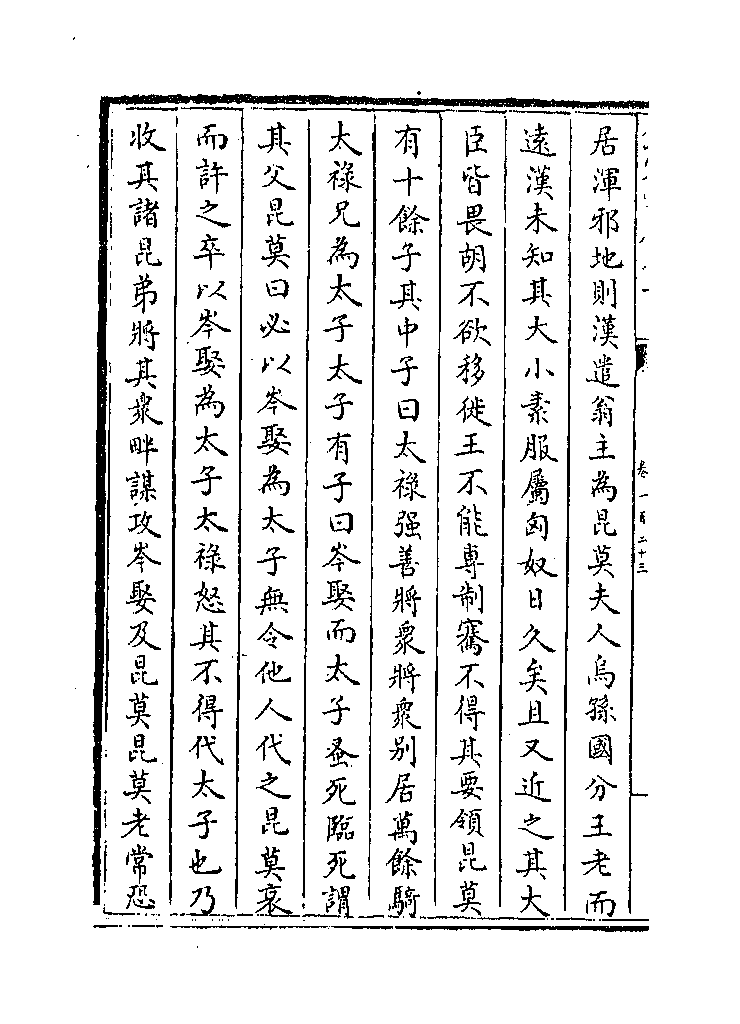 居渾邪地則漢遣翁主為昆莫夫人烏孫國分王老而
遠漢未知其大小素服屬匈奴日久矣且又近之其大
臣皆畏胡不欲移徙王不能專制騫不得其要領昆莫
有十餘子其中子曰太祿强善將衆將衆别居萬餘騎
太祿兄為太子太子有子曰岑娶而太子蚤死臨死謂
其父昆莫曰必以岑娶為太子無令他人代之昆莫哀
而許之卒以岑娶為太子太祿怒其不得代太子也乃
收其諸昆弟將其衆畔謀攻岑娶及昆莫昆莫老常恐
卷一百二十三